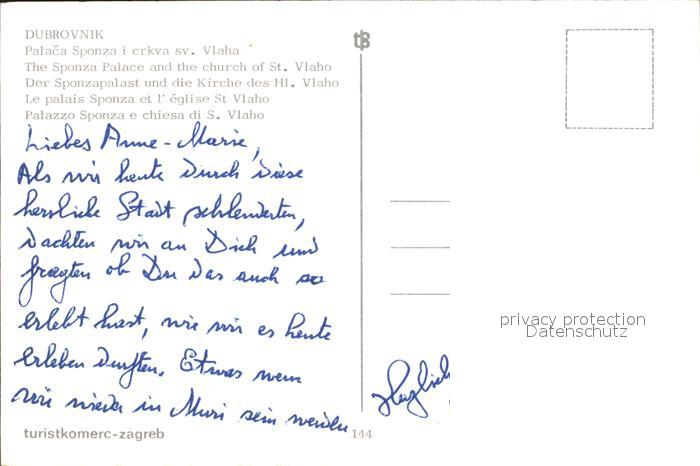 DUBROVNIK
Palača Sponza i crkva sv. Vlaha
The Sponza Palace and the church of St. Vlaho
Der Sponzapalast und die Kirche des Hl. Vlaho
Le palais Sponza et l' église St Vlaho
Palazzo Sponza e chiesa di S. Vlaho
Liebes Anne-Marie,
Als wir heute durch diese
herrliche Stadt schlenderten,
dachten wir an Dich und
fragten ob Du das auch so
erlebt hast, wie wir es heute
erleben durften. Etwas wenn
wir wieder in Muri sein werden
turistkomerc-zagreb
144
tB
privacy protection
Datenschutz